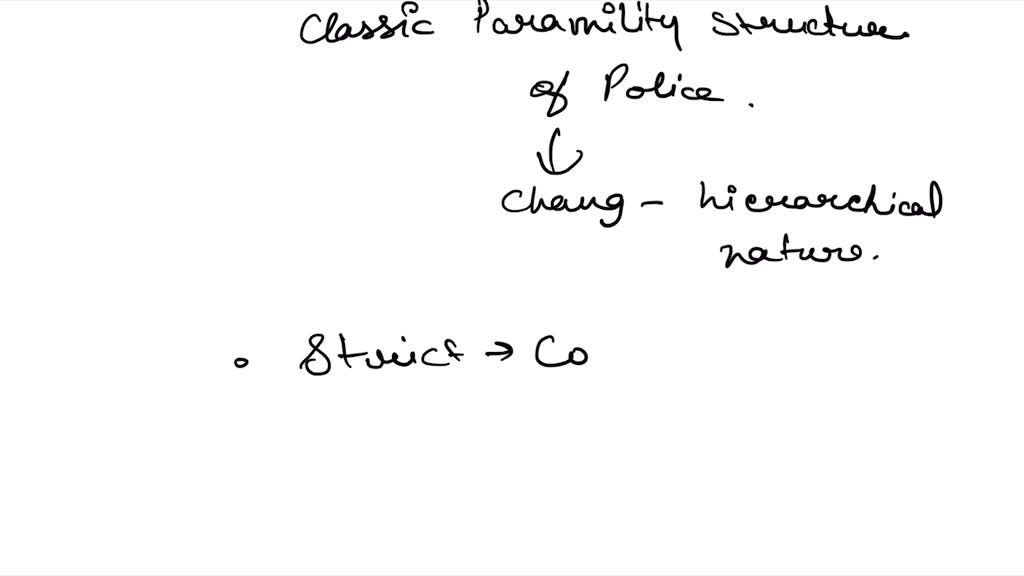 Classic Paramility Structure
of Police.
↓
Chang - hierarchical
nature.
• Strict → Co